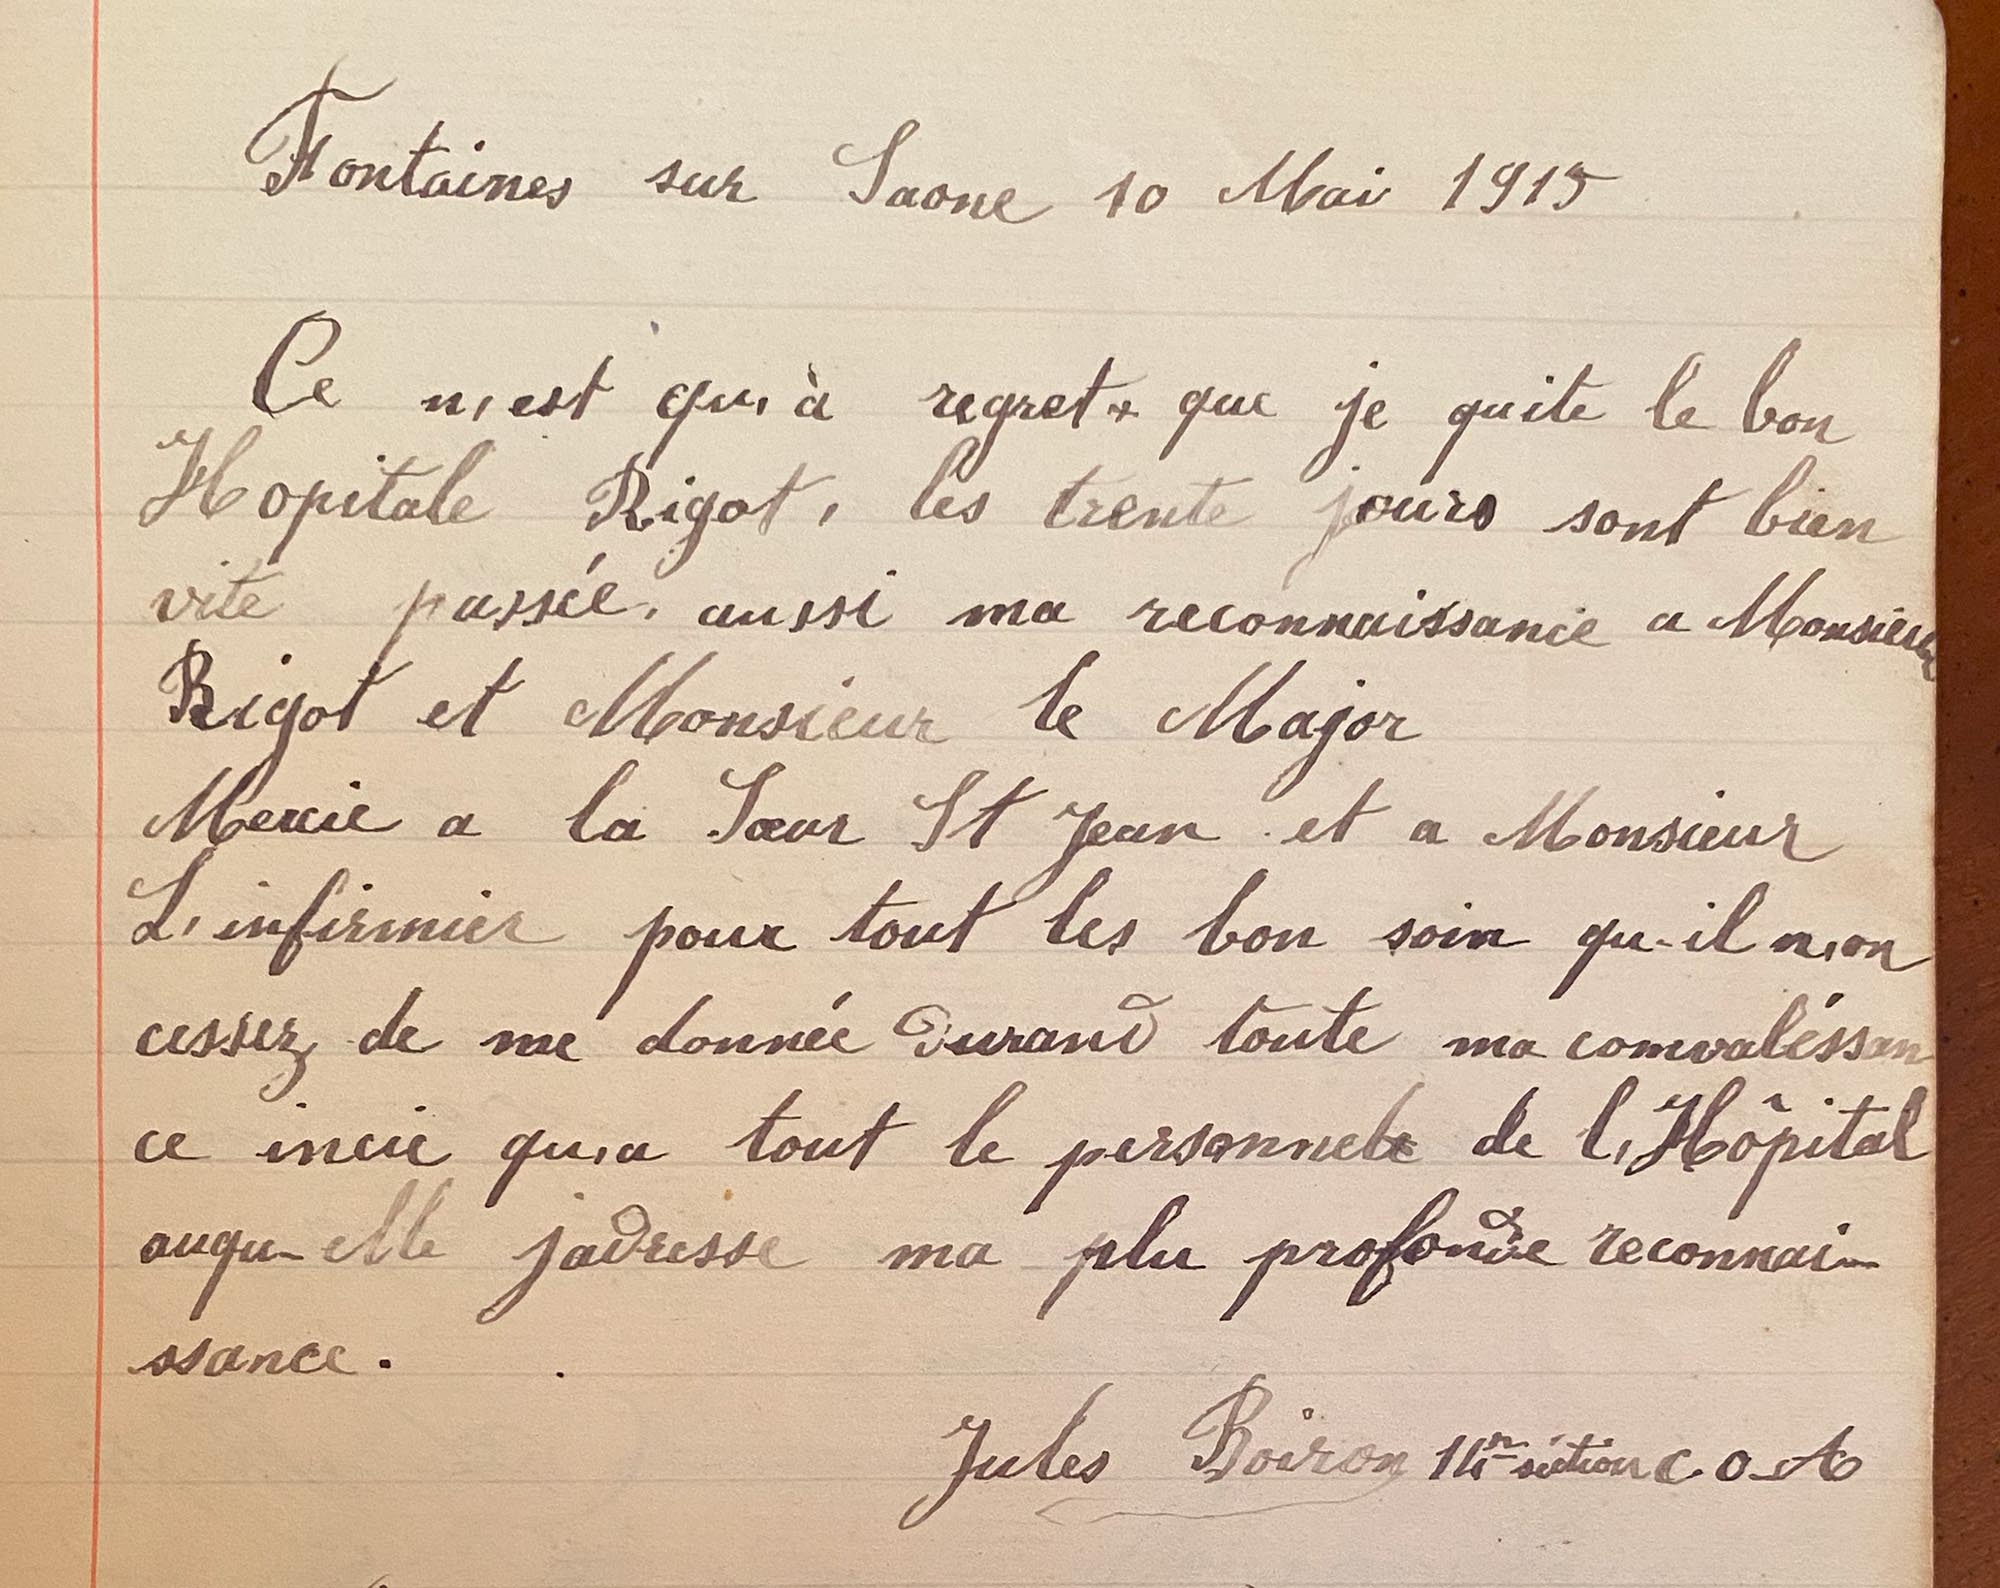 Fontaines sur Saone 10 Mai 1915
Ce n'est qu'à regret que je quite le bon
Hopitale Rigot, les trente jours sont bien
vite passée. aussi ma reconnaissance a Monsieur
Rigot et Monsieur le Major
Mercie a la Sœur St Jean et a Monsieur
L'infirmier pour tout les bon soin qu-il n'on
cessez de me donnée Durand toute ma comvaléssan
ce incie qu'a tout le personnele de l'Hôpital
auqu-elle jadresse ma plu profonde reconnai-
ssance.
Jules Boiron section C.O.A